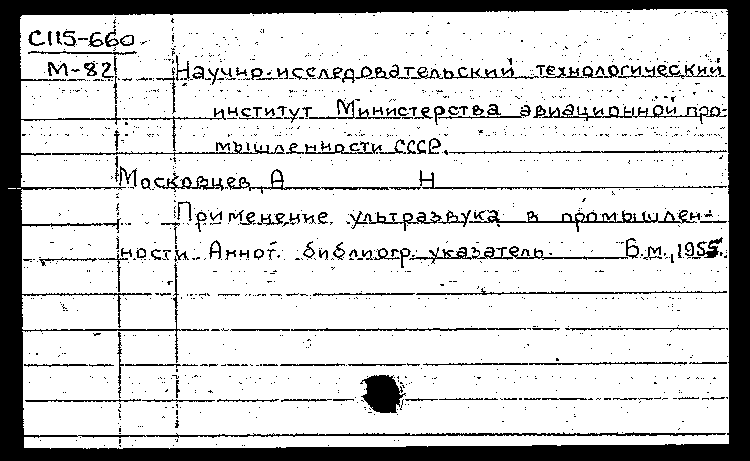 С115-660
М-82 Научно-исследовательский технологический
институт Министерства авиационной про-
мышленности СССР.
Московцев, А Н
Применение ультразвука в промышлен-
ности. Аннот. библиогр. указатель. Б.м., 1955.